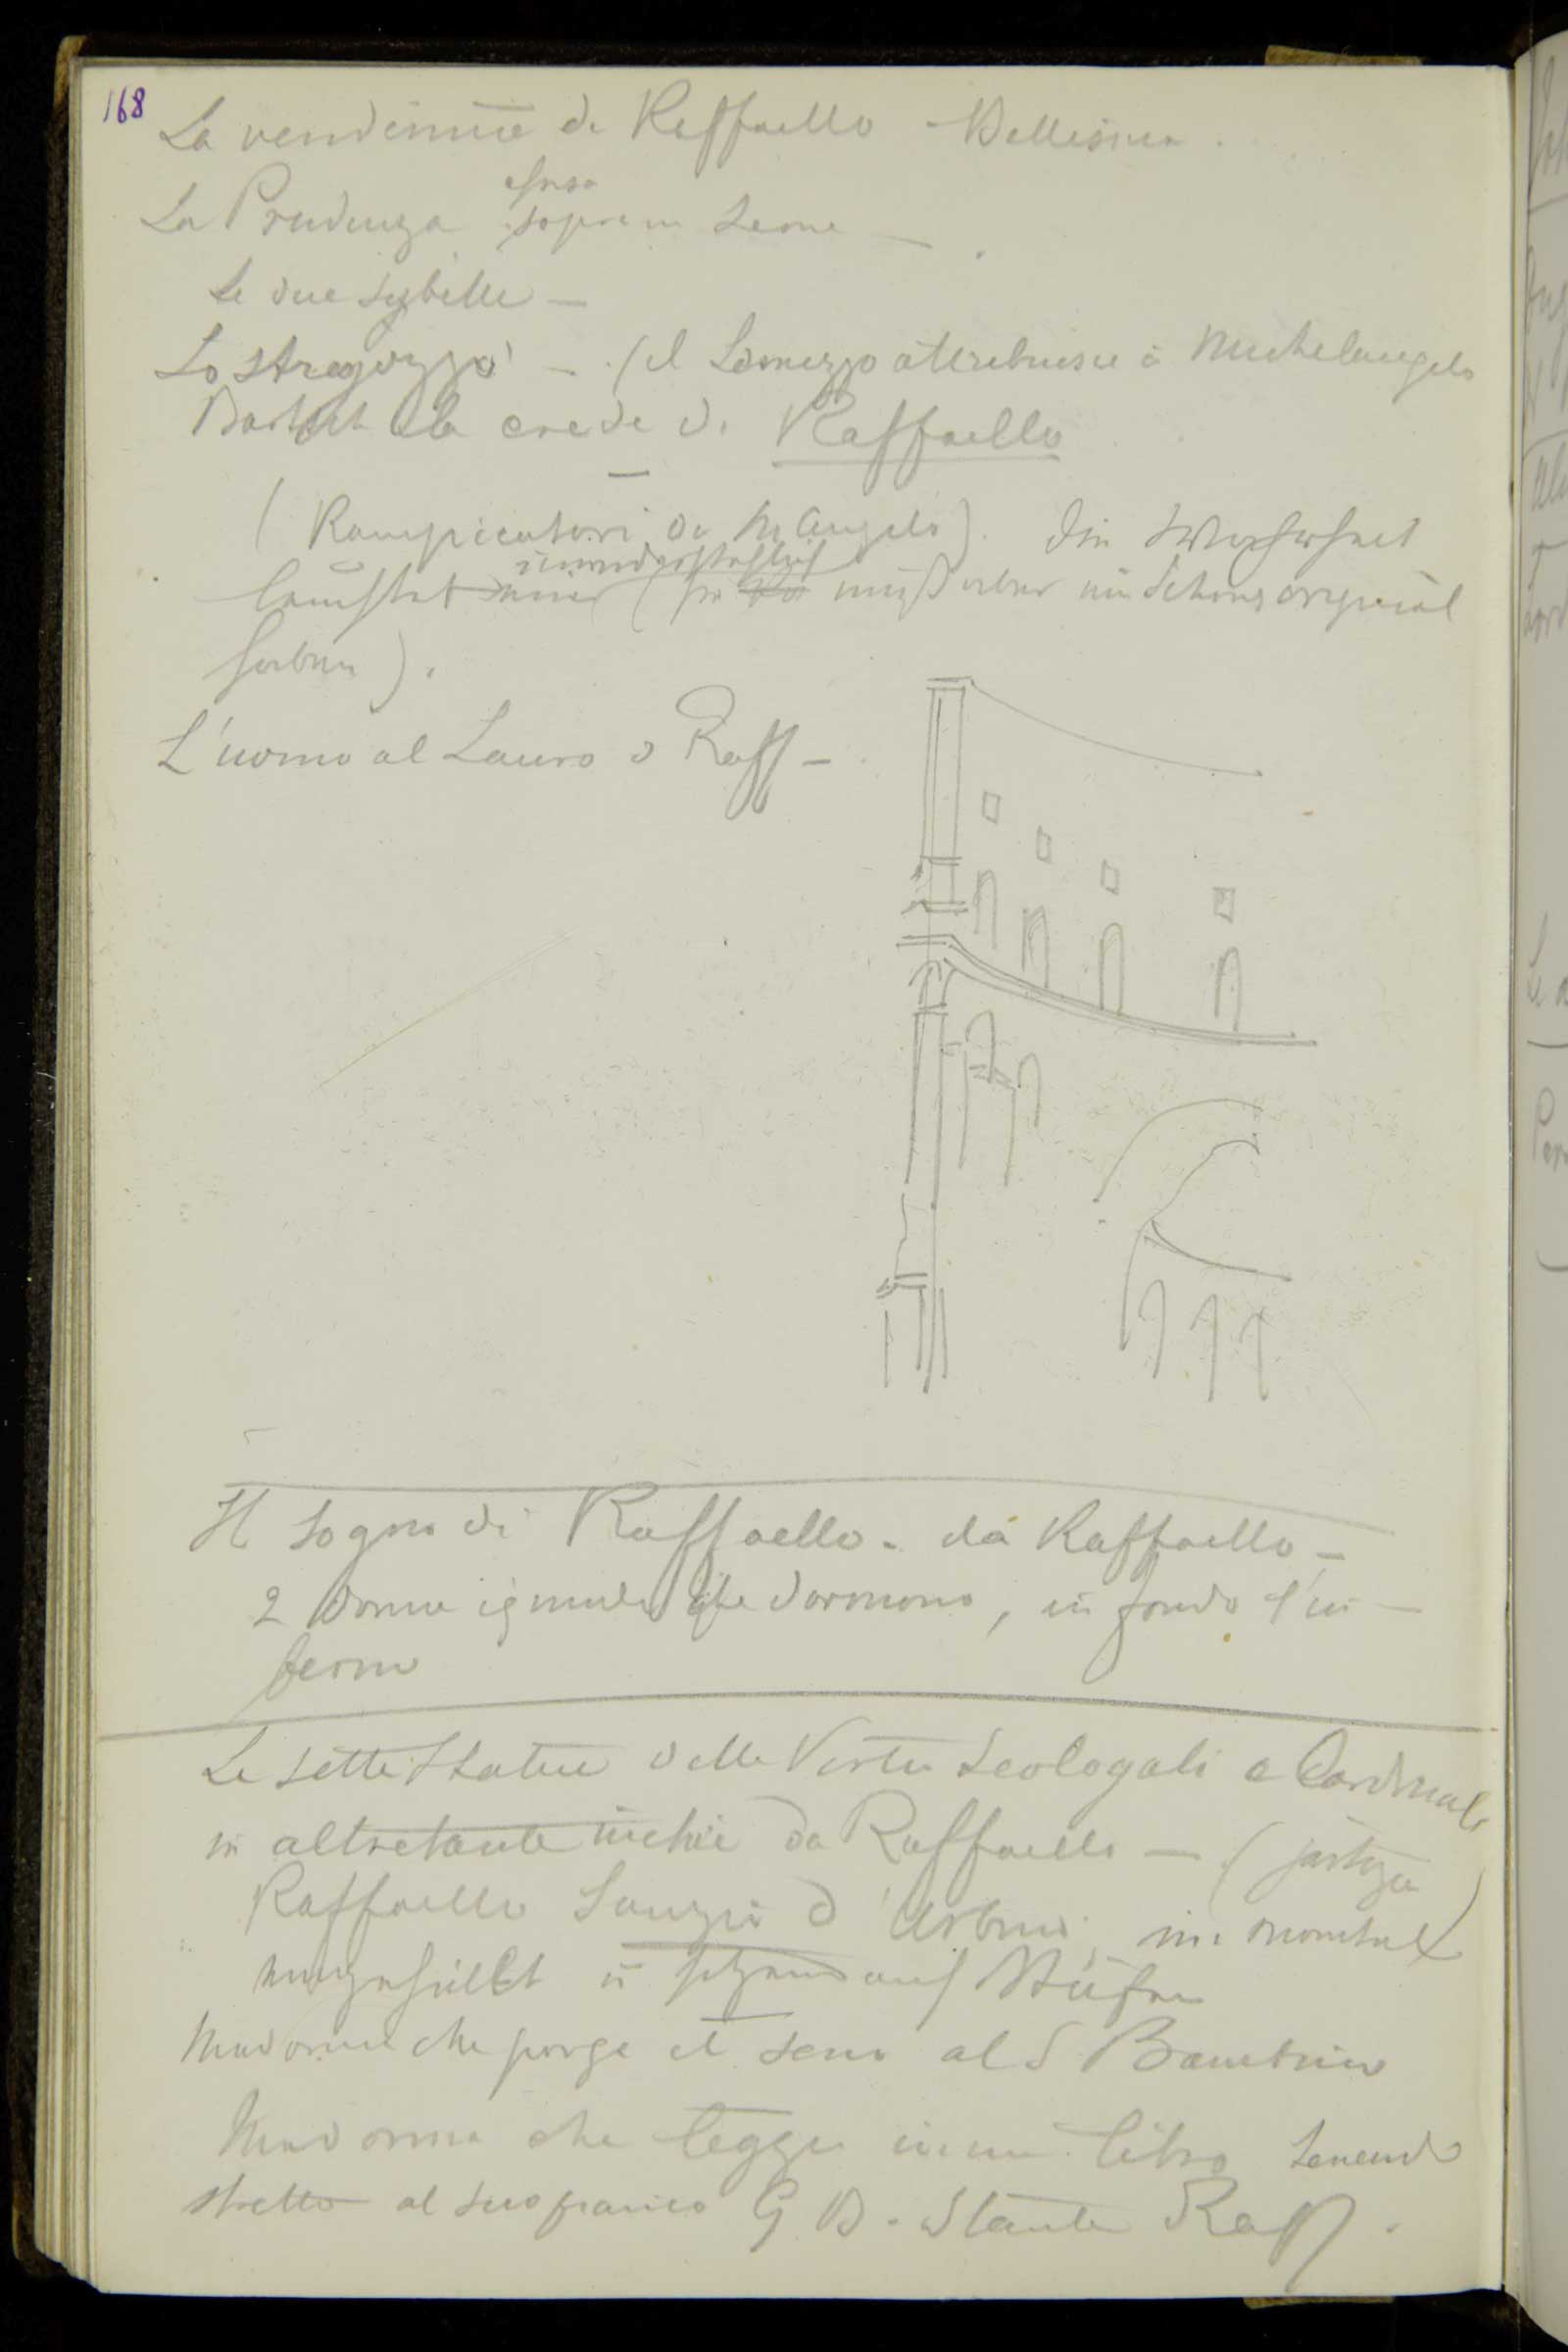 168
La vendemmia di Raffaello – Bellissima.
La Prudenza
sopra un Leone –
Le due Sybille –
Lo stregozzo – (il Lomazzo attribuisce à Michelangelo
Bartsch la crede di Raffaello
(Rampicatori da M Angelo). Die
unwiderstehlich
muß aber ein Schongorigniál
haben).
L'uomo al Lauro d Raff –
Il Sogno di Raffaello – da Raffaello –
2 Donne ignude che dormono, in fondo l'in –
ferno
Le sette Statue delle Vertu Teologali e Cardinali
in altretante nichie da Raffaello –
Raffaello Sanzio d'Urbino, im Mantel
eingehüllt u sitzend auf Stufen
Madonna che porge il seno al S Bambino
Madonna che legge in un libro tenendo
stretto al suo fianco G B. Stante Raff.